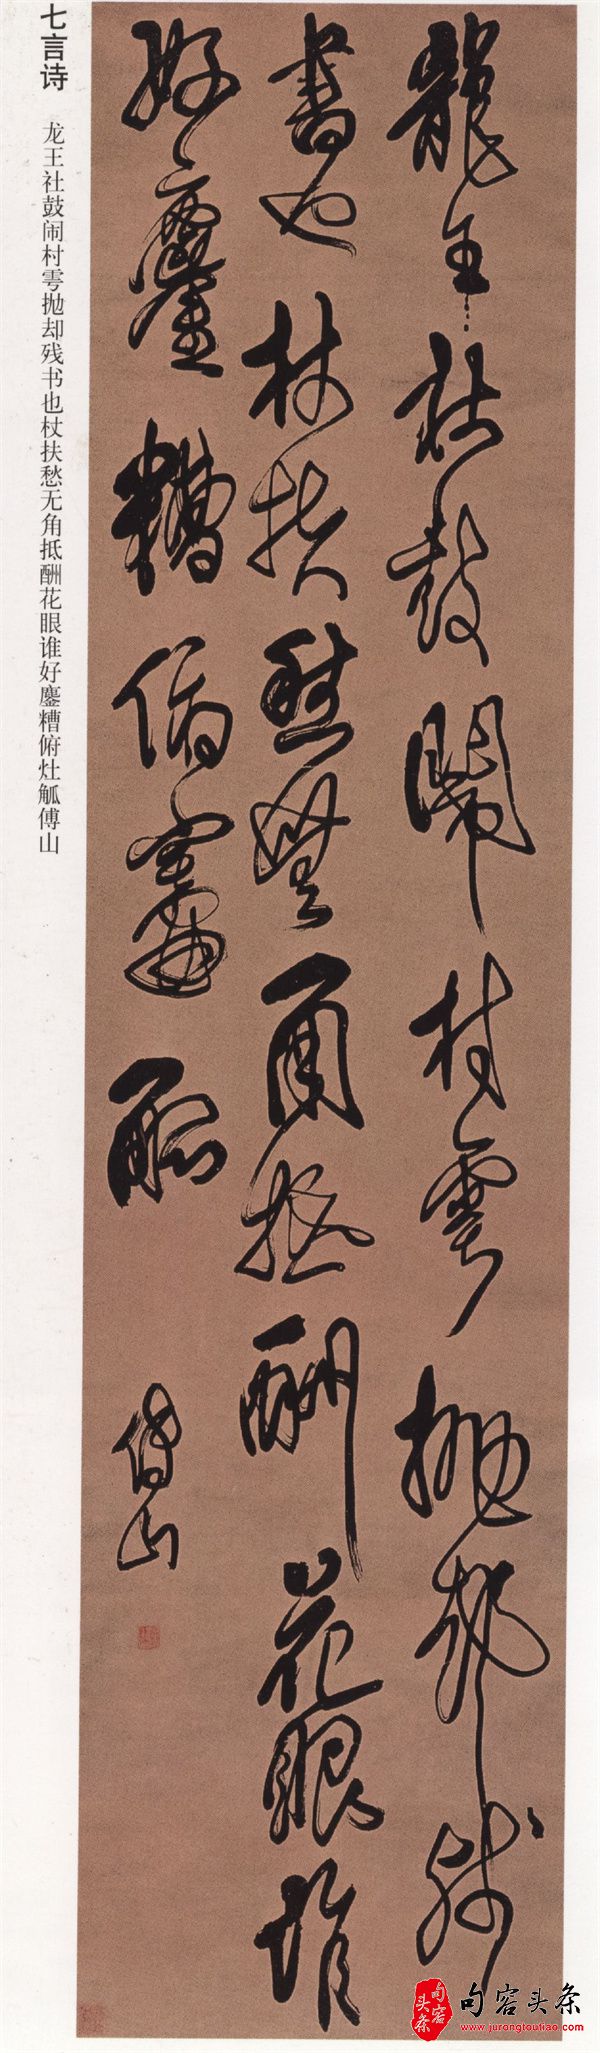 龍王社鼓鬧村雩拋卻殘
書也杖扶愁無角抵酬花眼誰
好鏖糟俯竈觚
傅山
七言诗 龙王社鼓闹村雩抛却残书也杖扶愁无角抵酬花眼谁好鏖糟俯灶觚傅山
句容头条
句容头条
www.jurongtoutiao.com